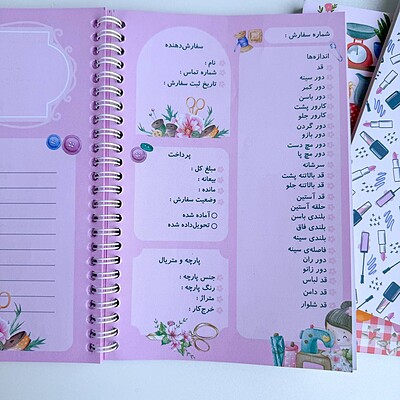 شماره سفارش :
اندازه‌ها
قد
دور سینه
دور کمر
دور باسن
کارور پشت
کارور جلو
دور گردن
دور بازو
دور مچ دست
دور مچ پا
سرشانه
قد بالاتنه پشت
قد بالاتنه جلو
قد آستین
حلقه آستین
بلندی باسن
بلندی فاق
بلندی سینه
فاصله‌ی سینه
دور ران
دور زانو
قد لباس
قد دامن
قد شلوار
سفارش‌دهنده
نام :
شماره تماس :
تاریخ ثبت سفارش :
پرداخت
مبلغ کل :
بیعانه :
مانده :
وضعیت سفارش :
آماده شده
تحویل‌داده شده
پارچه و متریال
جنس پارچه :
رنگ پارچه :
متراژ :
خرج‌کار :